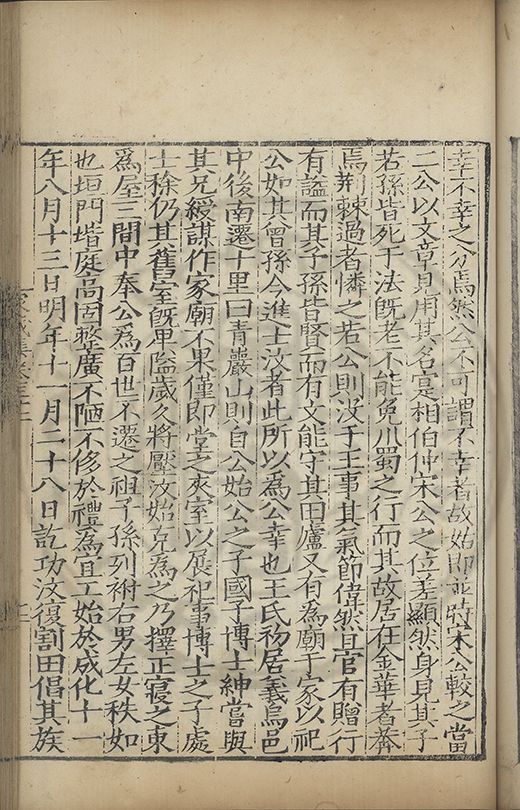 幸不幸之分焉然公不可謂不幸者故始即並時宋公較之當
二公以文章見用其名寔相伯仲宋公之位差顯然身見其子
若孫皆死于法既老不能免川蜀之行而其故居在金華者莽
焉荆棘過者憐之若公則沒于王事其氣節偉然且官有贈行
有謚而其子孫皆賢而有文能守其田廬又有為廟于家以祀
公如其曾孫今進士汶者此所以為公幸也王氏初居義烏邑
中後南遷十里曰青巖山則自公始公之子國子博士紳嘗與
其兄綬謀作家廟不果僅即堂之夾室以展祀事博士之子處
士稌仍其舊室既卑隘歲久將壓汶始克為之乃擇正寢之東
為屋三間中奉公為百世不遷之祖子孫列祔右男左女秩如
也垣門堦庭咼固整廣不陋不侈於禮為宜工始於成化十一
年八月十三日明年十一月二十八日訖功汶復割田倡其族